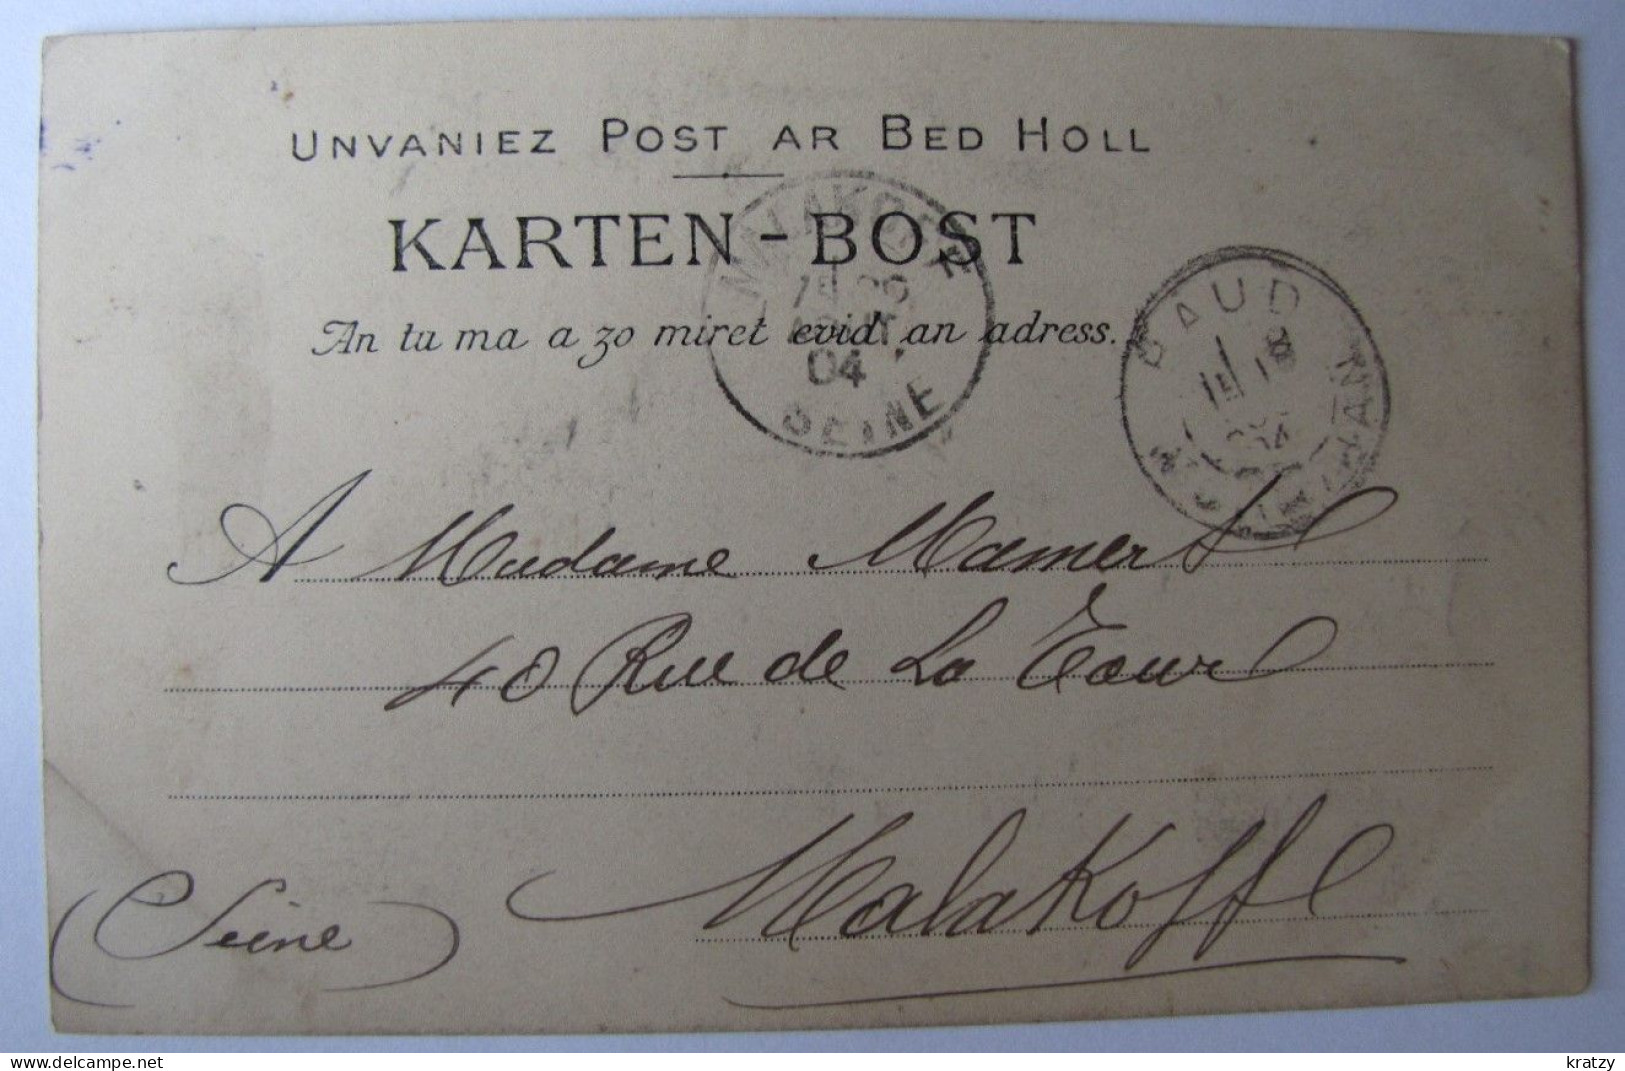 UNVANIEZ POST AR BED HOLL
KARTEN-BOST
An tu ma a zo miret evid an adress.
MALAKOFF
04
SEINE
BAUD
MORBIHAN
A Madame Mamert
40 Rue de La Tour
Malakoff
(Seine)
kratzy